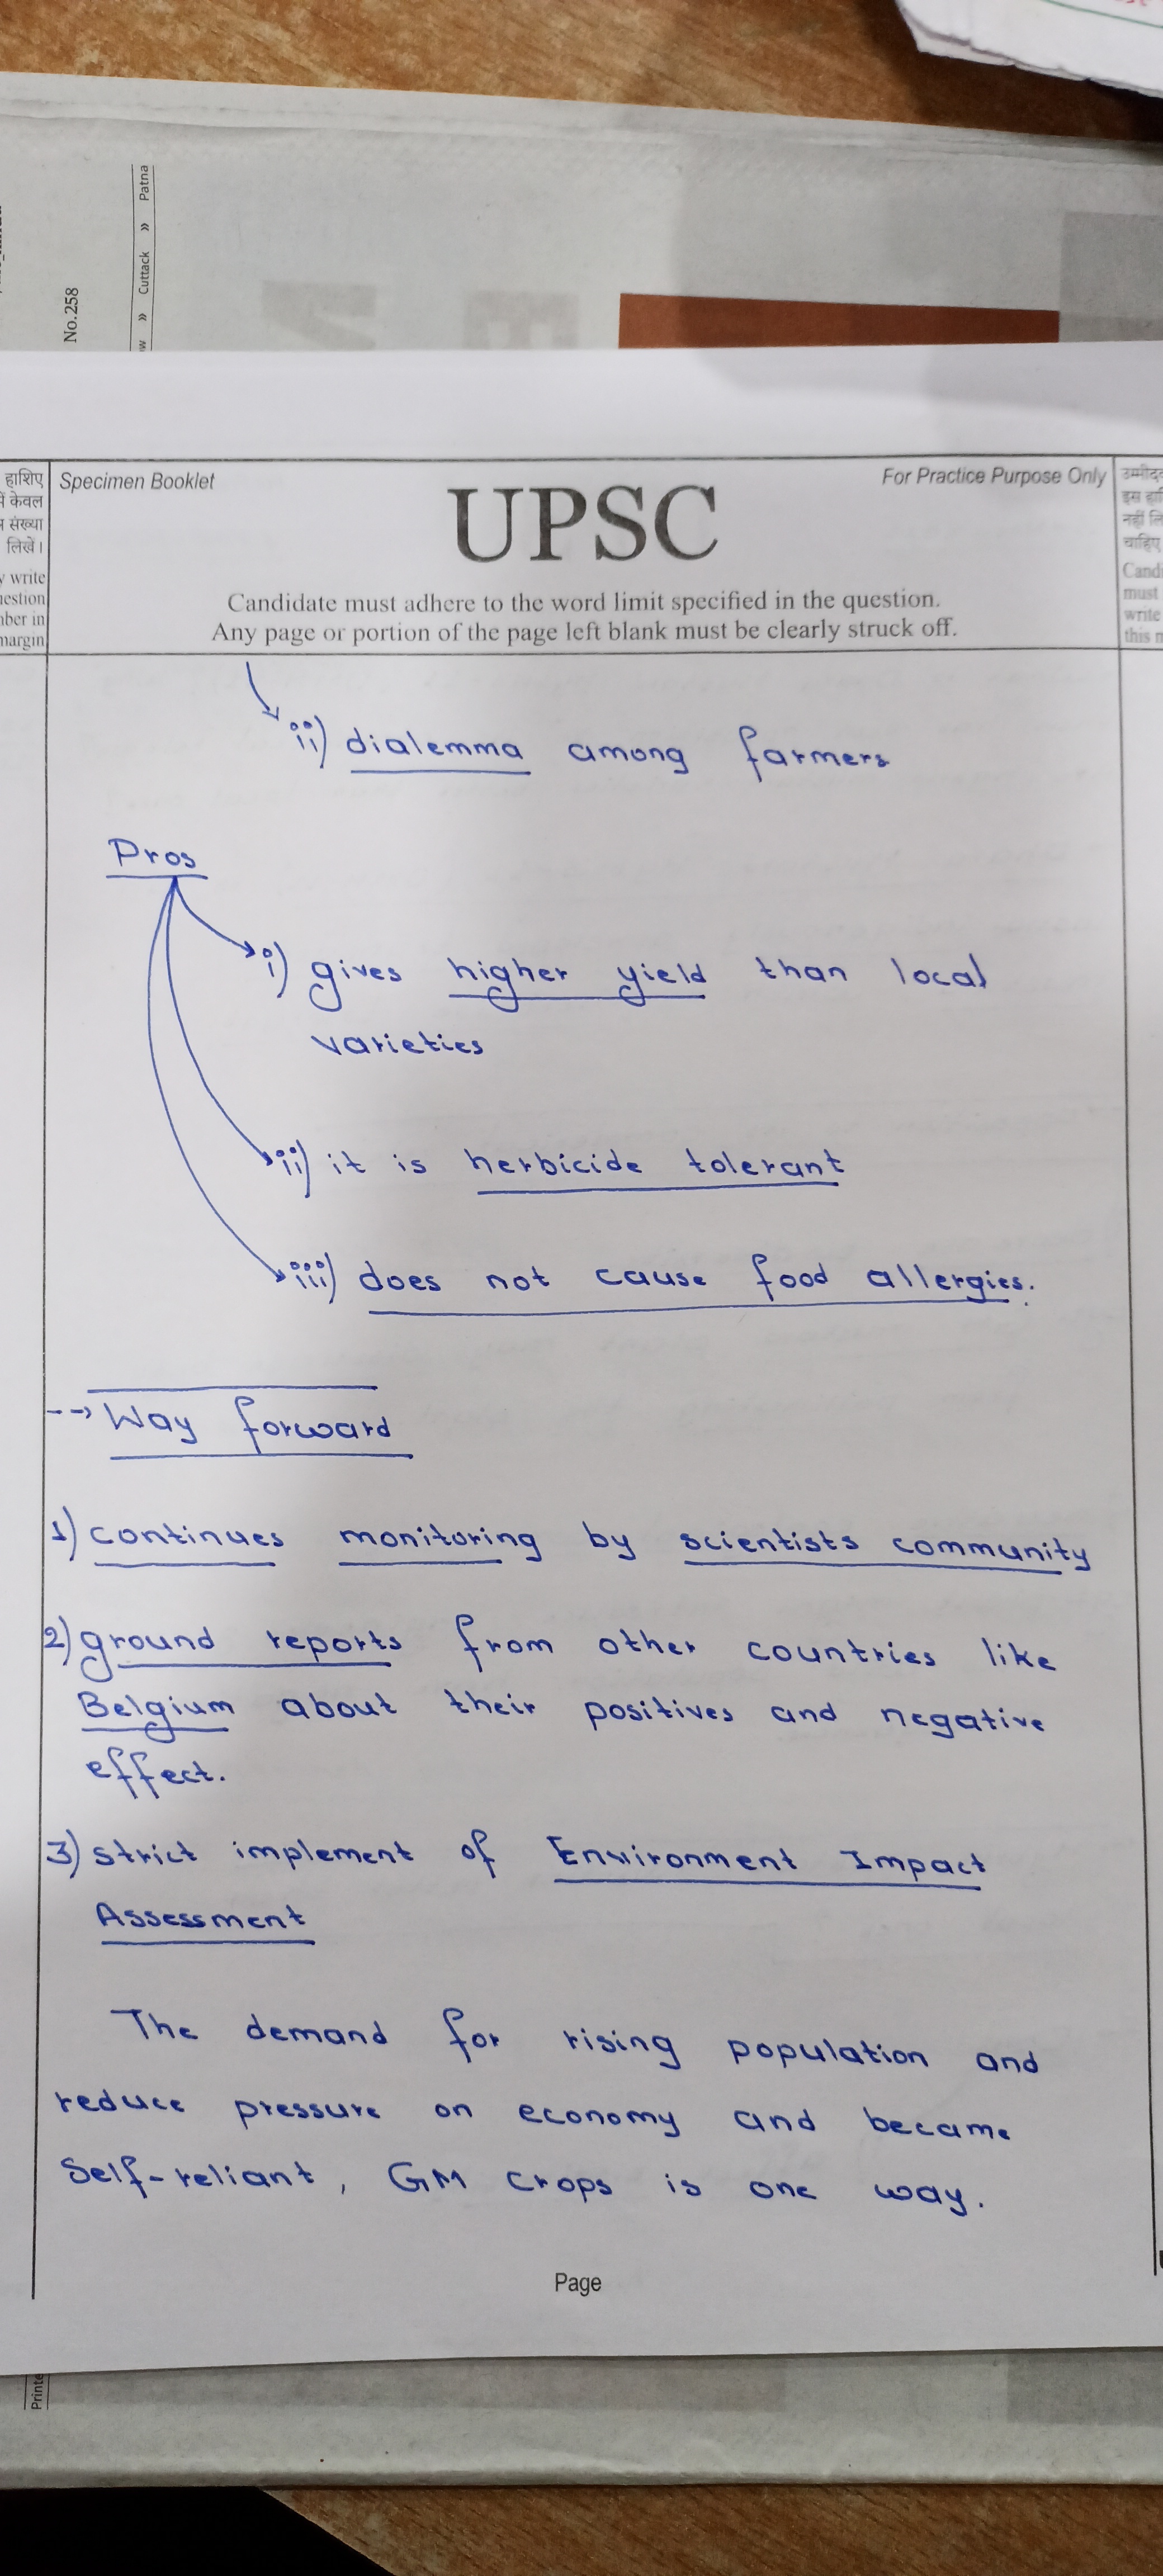 No.258
Cuttack » Patna
हाशिए
में केवल
संख्या
लिखें।
write
margin
Specimen Booklet
UPSC
For Practice Purpose Only
Candidate must adhere to the word limit specified in the question.
Any page or portion of the page left blank must be clearly struck off.
इस
चाहिए
must
write
this
ii) dialemma among farmers
Pros
i) gives higher yield than local
varieties
ii) it is herbicide tolerant
iii) does not cause food allergies.
--> Way forward
1) continues monitoring by scientists community
2) ground reports from other countries like
Belgium about their positives and negative
effect.
3) strict implement of Environment Impact
Assessment
The demand for rising population and
reduce pressure on economy and became
Self-reliant, GM crops is one way.
Page